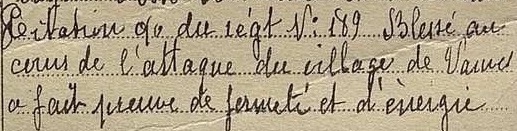 Citation du régt N: 189 Blessé au
cours de l'attaque du village de
a fait preuve de fermeté et d'énergie